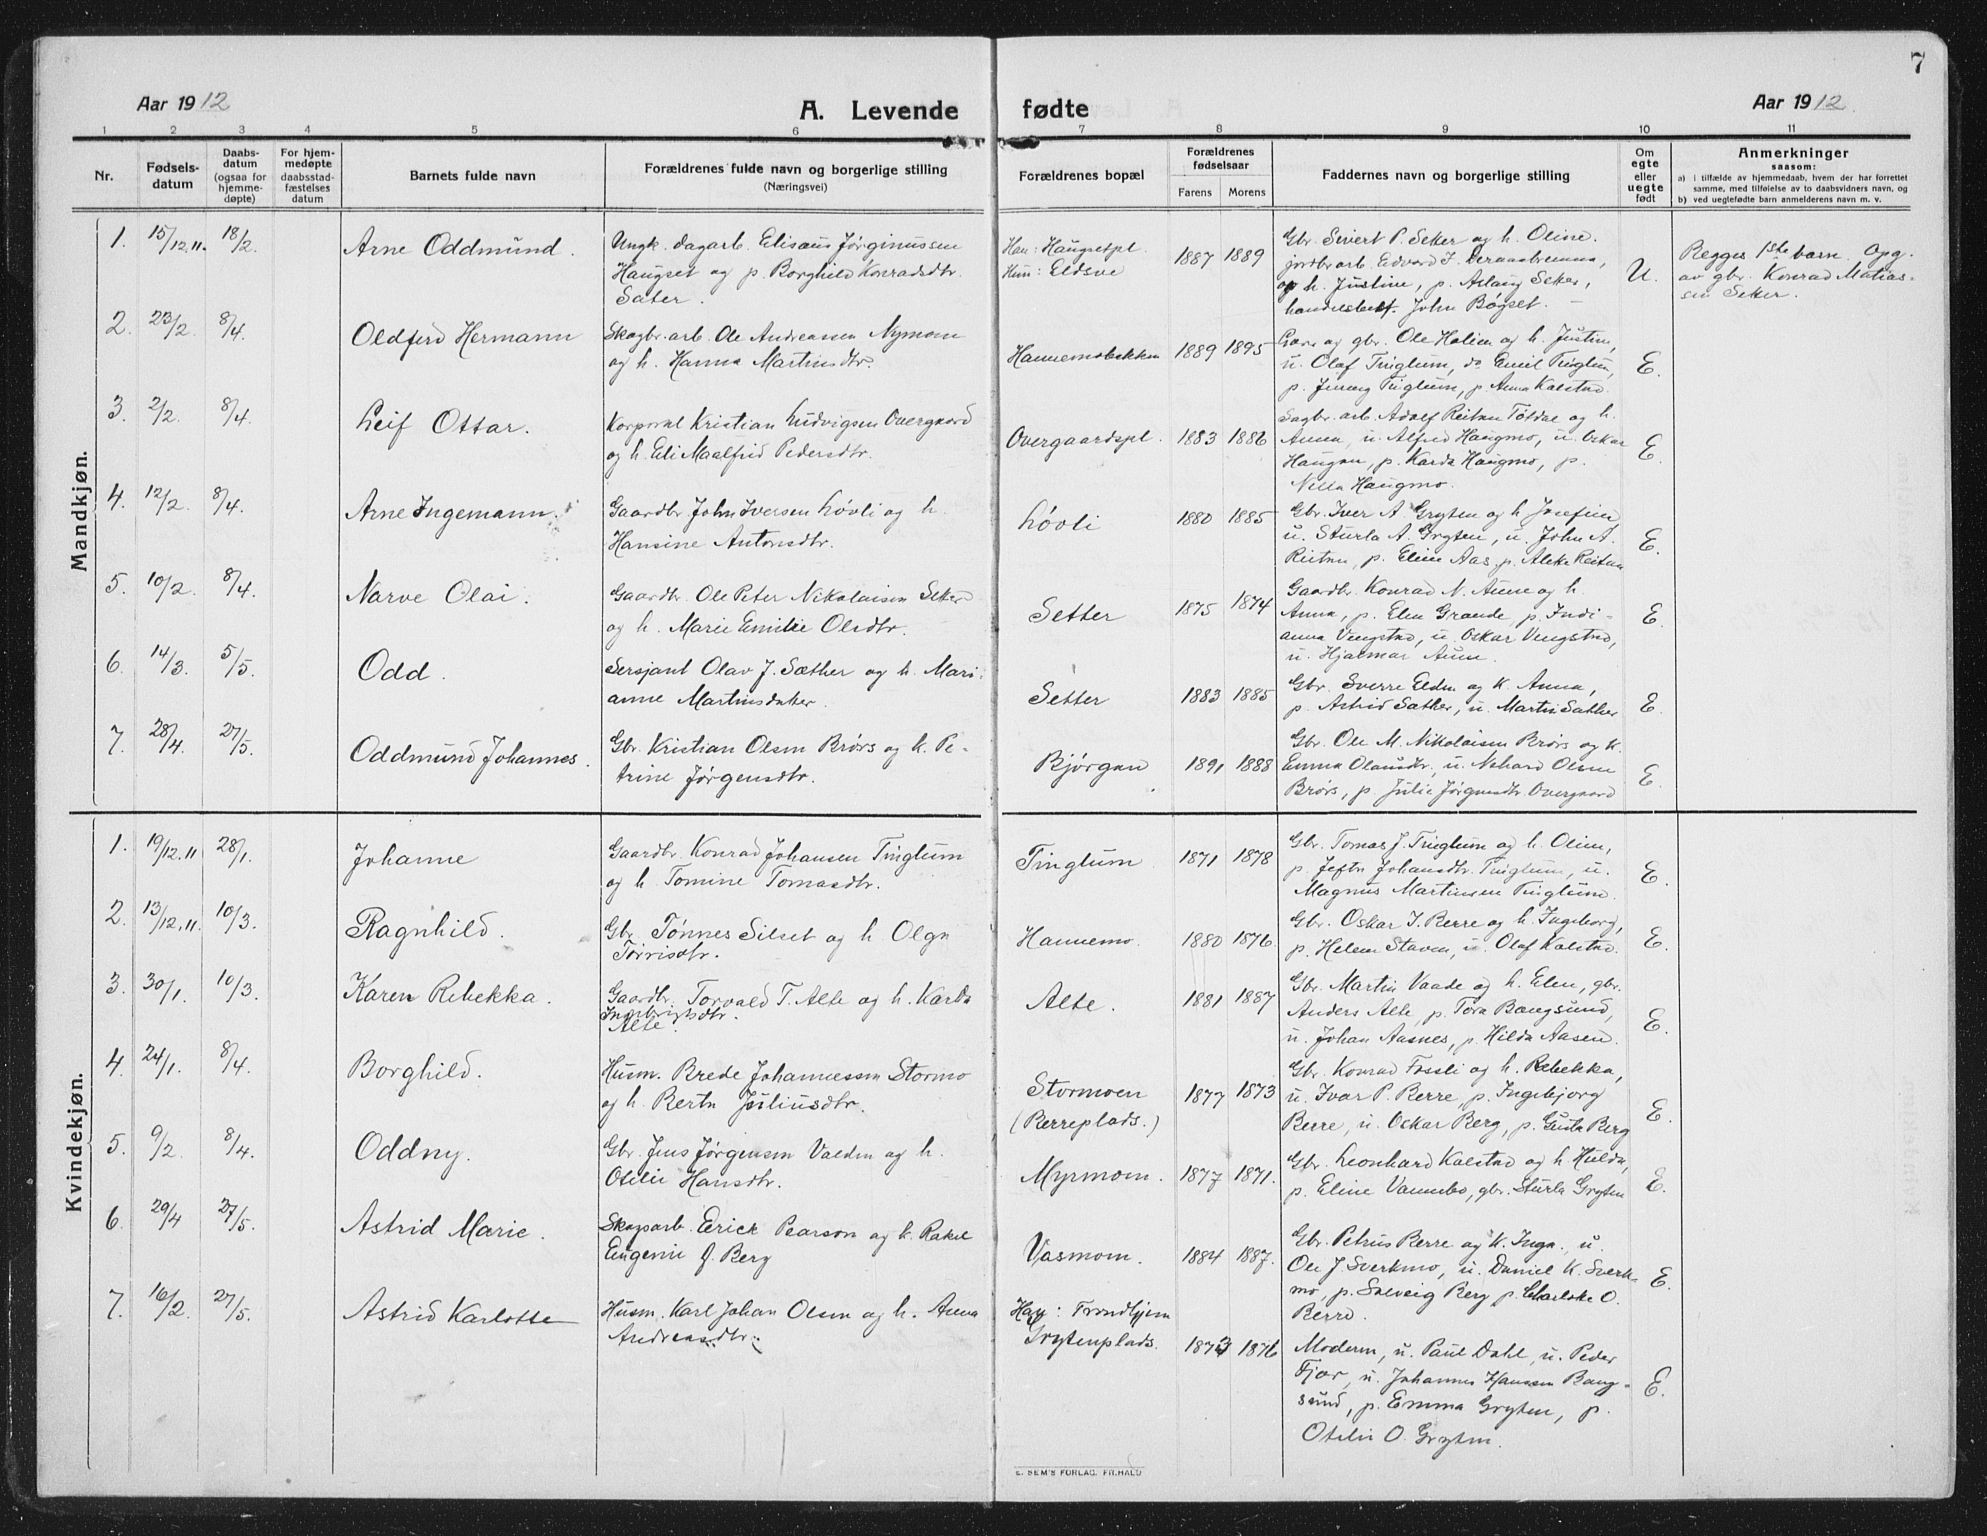 7
Aar 1912
A. Levende fødte
Aar 1912.
1 2 3 4 5 6 7 8 9 10 11
Nr.
Fødsels-
datum
Daabs-
datum
(ogsaa for
hjemme-
døpte)
For hjem-
medøpte
daabsstad-
fæstelses
datum
Barnets fulde navn
Forældrenes fulde navn og borgerlige stilling
(Næringsvei)
Forældrenes bopæl
Forældrenes
fødselsaar
Farens Morens
Faddernes navn og borgerlige stilling
Om
egte
eller
uegte
født
Anmerkninger
saasom:
a) i tilfælde av hjemmedaab, hvem der har forrettet
samme, med tilføielse av to daabsvidners navn, og
b) ved uegtefødte barn anmelderens navn m. v.
Mandkjøn.
1. 15/12.11. 18/2. Arne Oddmund.
Ungk. dagarb. Elisæus Jørginussen
Haugset og p. Borghild Konradsdtr.
Sæter.
Han: Haugsetpl.
Hun: Eldsve
1887 1889
Gbr. Sivert P. Seker og h. Oline.
jordbr.arb. Edvard J.
og h. Justine, p. Aslaug Seker,
handelsbest. John Bøgset.
U.
Begges 1ste barn. Opg.
av gbr. Konrad Matias-
sen Seker.
2. 23/2. 8/4. Oldferd Hermann
Skogbr.arb. Ole Andreassen Nymoen
og h. Hanna Martinsdtr.
Hannemobakken
1889 1895
og gbr. Ole Halien og h. Justine,
u. Olaf Tinglum, do. Emil Tinglum,
p. Jenny Tinglum, p. Anna Kalstad.
E.
3. 2/2. 8/4. Leif Ottar.
Korporal Kristian Ludvigsen Overgaard
og h. Eli Maalfrid Pedersdtr.
Overgaardspl.
1883 1886
Sagbr.arb. Adolf Reitan Toldæ og h.
Anna, u. Alfred Haugmo, u. Oskar
Haugan, p. Karda Haugmo, p.
Nilla Haugmo.
E.
4. 12/2. 8/4. Arne Ingemann.
Gaardbr. John Iversen Løvli og h.
Hansine Antonsdtr.
Løvli
1880 1885
Gbr. Iver A Gryten og h Josefine
u. Sturla A. Gryten, u. John A.
Reitan, p. Eline Aas, p. Aleka Reitan
E.
5. 10/2. 8/4. Narve Olai.
Gaardbr. Ole Peter Nikolaisen Seker
og h. Marie Emilie Olsdtr.
Setter
1875 1874
Gaardbr. Konrad N. Aune og h.
Anna, p. Elen Grande, p. Indi-
anna Vengstad, u. Oskar Vengstad,
u. Hjalmar Aune.
E.
6. 14/3. 5/5. Odd.
Sersjant Olav J. Sæther og h. Mari-
anne Martinsdatter.
Setter
1883 1885
Gbr. Sverre Elden og h. Anna,
p. Astrid Sæther, u. Martin Sæther
E.
7. 28/4. 27/5. Oddmund Johannes.
Gbr. Kristian Olsen Brørs og h. Pe-
trine Jørgensdtr.
Bjørgan
1891 1888
Gbr. Ole M. Nikolaisen Brørs og h.
Emma Olausdtr., u. Nohard Olsen
Brørs, p. Julie Jørgensdtr. Overgaard
E.
Kvindekjøn.
1. 19/12.11 28/1. Johanne
Gaardbr. Konrad Johansen Tinglum
og h. Tomine Tomasdtr.
Tinglum
1871 1878
Gbr. Tomas J. Tinglum og h. Oline,
p. Jefta Johansdtr. Tinglum, u.
Magnus Martinsen Tinglum.
E.
2. 13/12.11. 10/3. Ragnhild.
Gbr. Tønnes Silset og h. Olga
Tørrisdtr.
Hannemo.
1880 1876.
Gbr. Oskar I. Berre og h. Ingeborg,
p. Helena Staven, u. Olaf Kalstad.
E.
3. 30/1. 10/3. Karen Rebekka.
Gaardbr. Torvald T. Alte og h. Karla
Ingebrigtsdtr.
Alte.
Alte.
1881 1887
Gbr. Martin Vaade og h. Elen, gbr.
Anders Alte, p. Tora Bangsund,
u. Johan Aasnes, p. Hilda Aasen.
E.
4. 24/1. 8/4. Borghild.
Husm. Brede Johannessen Stormo
og h. Berta Juliusdtr.
Stormoen
(Berreplads.)
1877 1873
Gbr. Konrad Fossli og h. Rebekka,
u. Ivar P. Berre p. Ingebjorg
Berre, u. Oskar Berg, p. Gusta Berg
E.
5. 9/2. 8/4. Oddny.
Gbr. Jens Jørgensen Valden og h.
Otilie Hansdtr.
Myrmoen.
1877 1871.
Gbr. Leonhard Kalstad og h Hulda,
p. Eline Vannebo, gbr. Sturla Gryten
E.
6. 29/4 27/5. Astrid Marie.
Skogarb. Erick Pearson og h. Rakel
Eugenie f. Berg
Vasmoen.
1884 1887.
Gbr. Petrus Berre og h. Inga., u.
Ole J Sverkmo, u. Daniel K. Sverk-
mo, p. Solveig Berg p. Charlotte O.
Berre.
E.
7. 16/2. 27/5. Astrid Karlotte
Husm. Karl Johan Olsen og h. Anna
Andreasdtr.
Han: Trondhjem
Grytenplads.
1873 1876
Moderen, u. Paul Dahl, u. Peder
Fjær, u. Johannes Hansen Bang-
sund, p. Emma Gryten, p.
Otelie O. Gryten.
E.
E. SEM'S FORLAG, FR.HALD